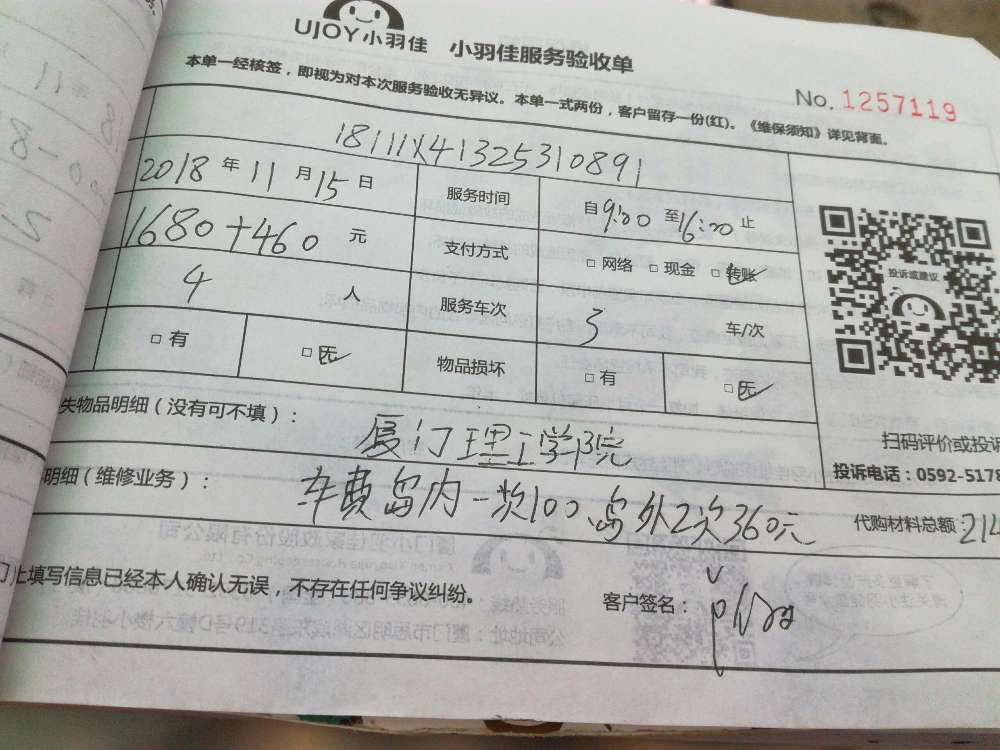 UJOY小羽佳 小羽佳服务验收单
本单一经核签，即视为对本次服务验收无异议。本单一式两份，客户留存一份(红)。《维保须知》详见背面。
No. 1257119
18111X41325310891
2018 年 11 月 15 日 服务时间 自9:00 至16:00止
1680+460 元 支付方式 □ 网络 □ 现金 □ 转账
4 人 服务车次 3 车/次
□ 有 □ 无 物品损坏 □ 有 □ 无
投诉或建议
失物品明细（没有可不填）： 厦门理工学院
扫码评价或投诉
投诉电话：0592-5178
明细（维修业务）： 车费岛内一次100、岛外2次360元
代购材料总额：214
上填写信息已经本人确认无误，不存在任何争议纠纷。 客户签名：